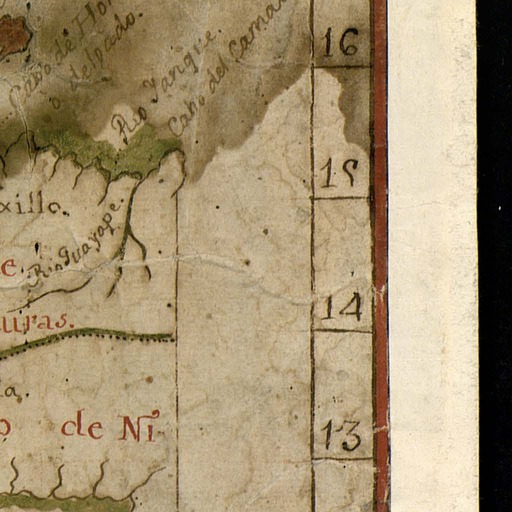 Cavo de Hon
o delpado.
Rio Tangre.
Cabo del Camaro
16
15
xillo.
Rio Guayape.
e.
14
uras.
a.
o de Ni-
13